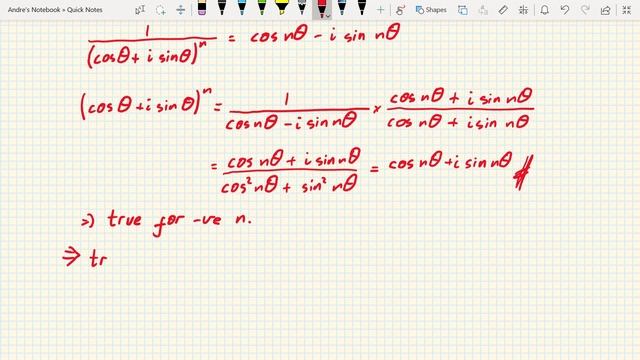 Andre's Notebook » Quick Notes
Shapes
1/(cosθ + i sinθ)^n = cos nθ - i sin nθ
(cosθ + i sinθ)^n = 1/(cos nθ - i sin nθ) × (cos nθ + i sin nθ)/(cos nθ + i sin nθ)
= (cos nθ + i sin nθ)/(cos² nθ + sin² nθ) = cos nθ + i sin nθ //
=> true for -ve n.
=> tr